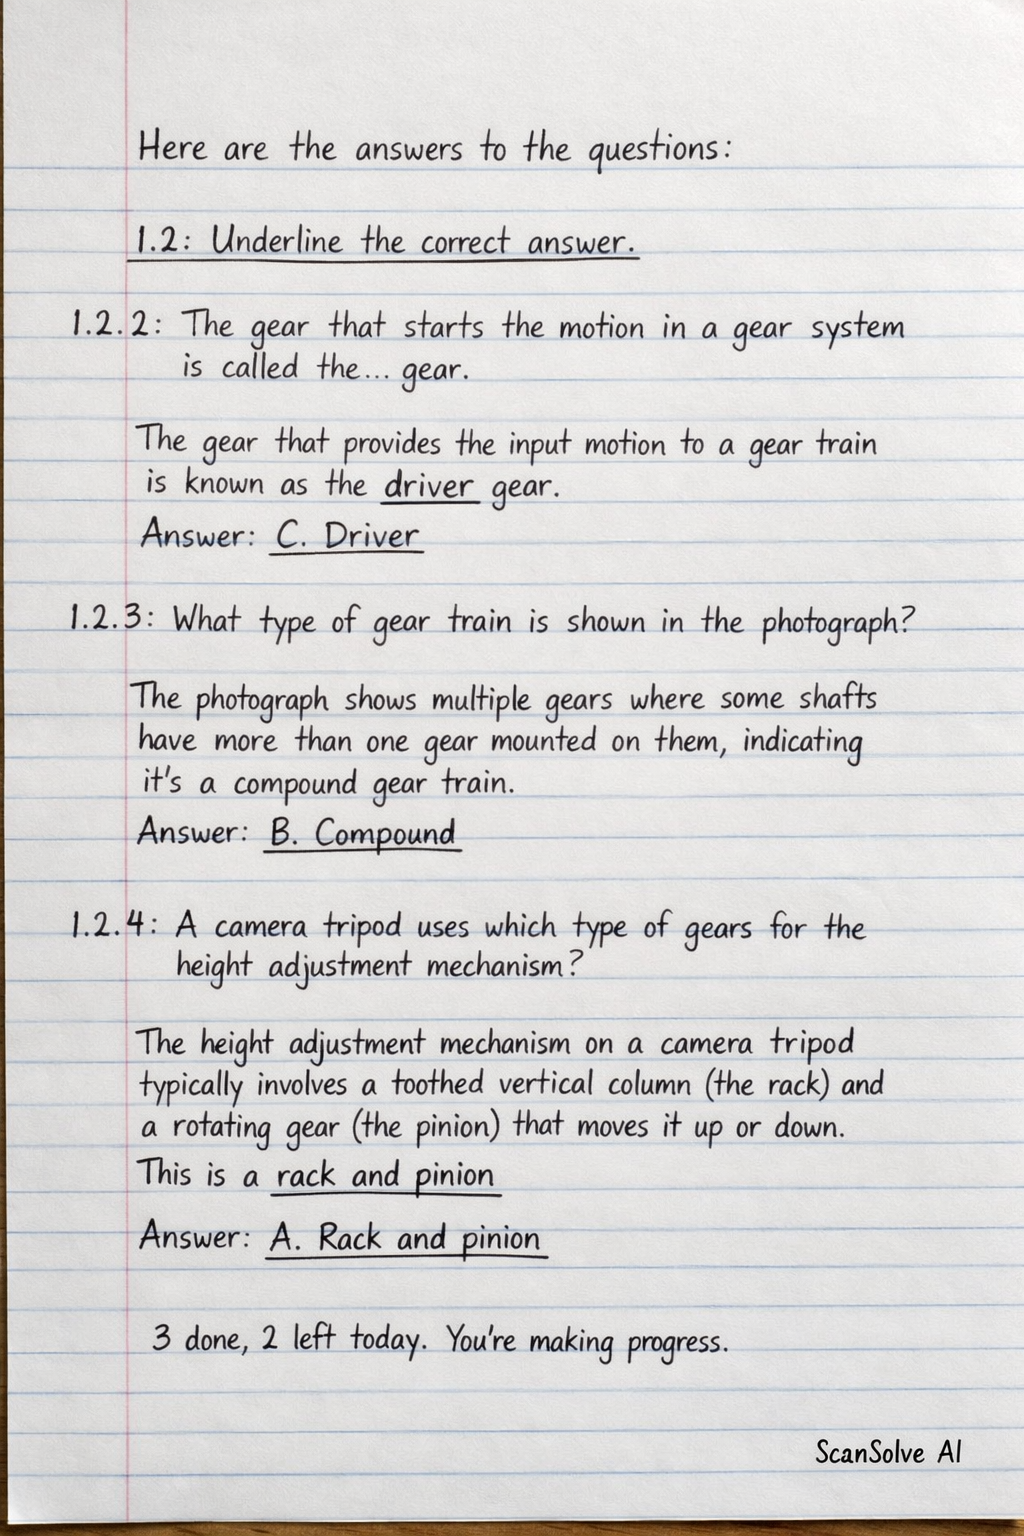 Here are the answers to the questions:
1.2: Underline the correct answer.
1.2.2: The gear that starts the motion in a gear system
is called the... gear.
The gear that provides the input motion to a gear train
is known as the driver gear.
Answer: C. Driver
1.2.3: What type of gear train is shown in the photograph?
The photograph shows multiple gears where some shafts
have more than one gear mounted on them, indicating
it's a compound gear train.
Answer: B. Compound
1.2.4: A camera tripod uses which type of gears for the
height adjustment mechanism?
The height adjustment mechanism on a camera tripod
typically involves a toothed vertical column (the rack) and
a rotating gear (the pinion) that moves it up or down.
This is a rack and pinion
Answer: A. Rack and pinion
3 done, 2 left today. You're making progress.
ScanSolve AI